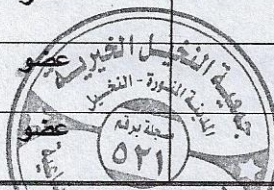 عضو
عضو
جمعية النخيل الخيرية
المدينة المنورة - النخيل
مسجلة برقم
٥٢١